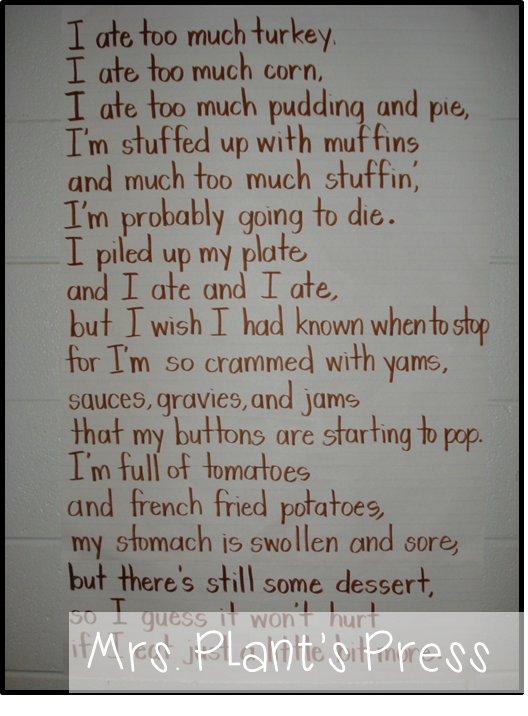 I ate too much turkey.
I ate too much corn,
I ate too much pudding and pie,
I'm stuffed up with muffins
and much too much stuffin',
I'm probably going to die.
I piled up my plate
and I ate and I ate,
but I wish I had known when to stop
for I'm so crammed with yams,
sauces, gravies, and jams
that my buttons are starting to pop.
I'm full of tomatoes
and french fried potatoes,
my stomach is swollen and sore,
but there's still some dessert,
so I guess it won't hurt
if I eat just a little bit more.
Mrs. Plant's Press